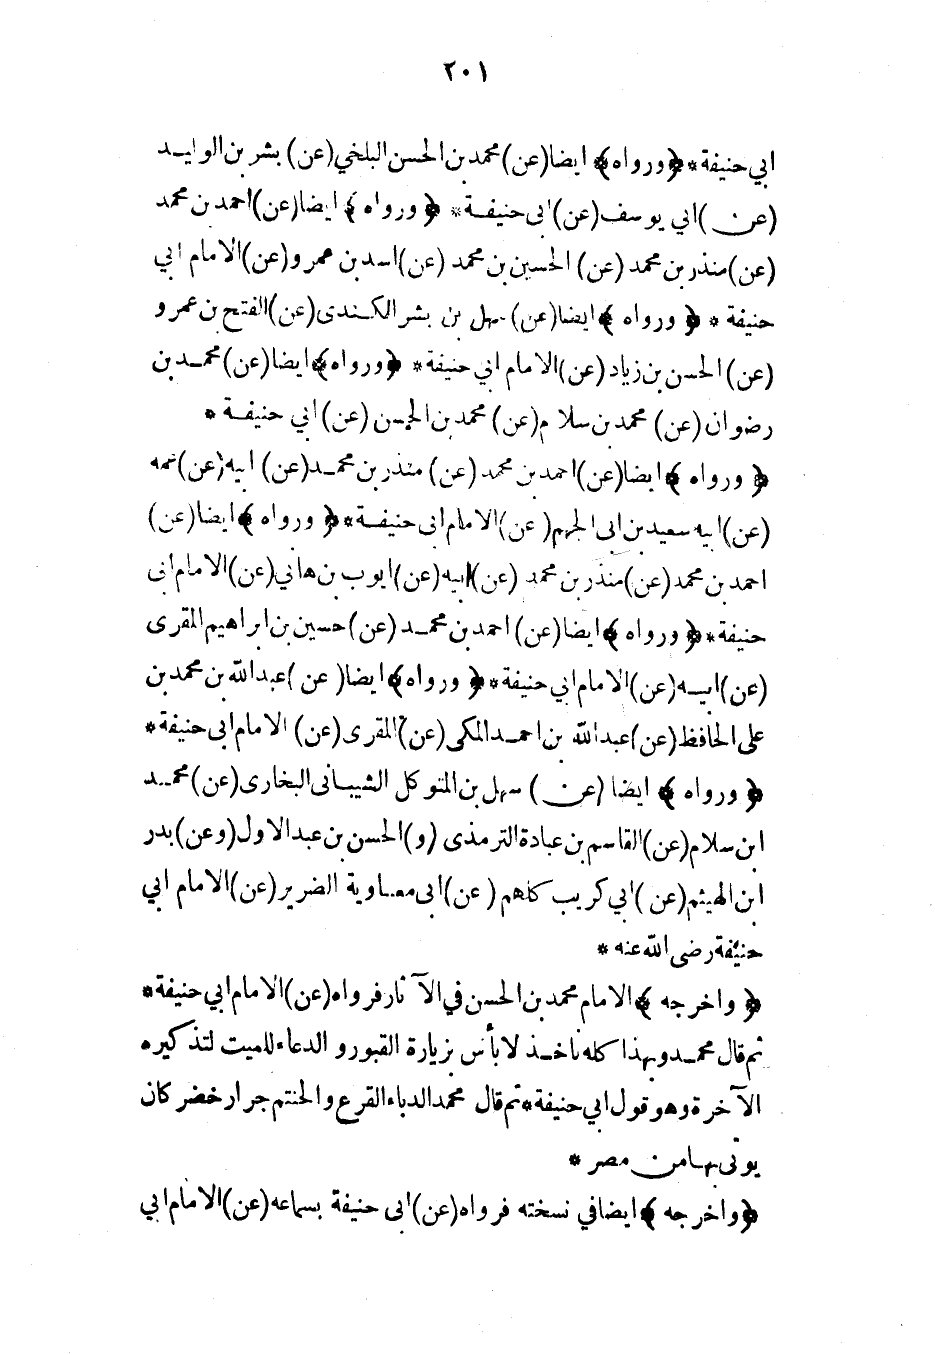 ٢٠١
ابي حنيفة * ﴿ ورواه ﴾ ايضا (عن) محمد بن الحسن البلخي (عن) بشر بن الوليد
(عن) ابي يوسف (عن) ابى حنيفة * ﴿ ورواه ﴾ ايضا (عن) احمد بن محمد
(عن) منذر بن محمد (عن) الحسين بن محمد (عن) اسد بن عمرو (عن) الامام ابي
حنيفة * ﴿ ورواه ﴾ ايضا (عن) سهل بن بشر الكندى (عن) الفتح بن عمرو
(عن) الحسن بن زياد (عن) الامام ابي حنيفة * ﴿ ورواه ﴾ ايضا (عن) محمد بن
رضوان (عن) محمد بن سلام (عن) محمد بن الحسن (عن) ابي حنيفة *
﴿ ورواه ﴾ ايضا (عن) احمد بن محمد (عن) منذر بن محمد (عن) ابيه (عن) عمه
(عن) ابيه سعيد بن ابى الجهم (عن) الامام ابى حنيفة * ﴿ ورواه ﴾ ايضا (عن)
احمد بن محمد (عن) منذر بن محمد (عن) ابيه (عن) ايوب بن هاني (عن) الامام ابى
حنيفة * ﴿ ورواه ﴾ ايضا (عن) احمد بن محمد (عن) حسين بن ابراهيم المقرى
(عن) ابيه (عن) الامام ابي حنيفة * ﴿ ورواه ﴾ ايضا (عن) عبد الله بن محمد بن
على الحافظ (عن) عبد الله بن احمد المكى (عن) المقرى (عن) الامام ابى حنيفة *
﴿ ورواه ﴾ ايضا (عن) سهل بن المتوكل الشيبانى البخارى (عن) محمد
ابن سلام (عن) القاسم بن عبادة الترمذى (و) الحسن بن عبد الاول (وعن) بدر
ابن الهيثم (عن) ابي كريب كلهم (عن) ابى معاوية الضرير (عن) الامام ابي
حنيفة رضى الله عنه *
﴿ واخرجه ﴾ الامام محمد بن الحسن في الآثار فرواه (عن) الامام ابي حنيفة *
ثم قال محمد وبهذا كله ناخذ لا بأس بزيارة القبور و الدعاء للميت لتذكيره
الآخرة وهو قول ابي حنيفة * ثم قال محمد الدباء القرع والحنتم جرار خضر كان
يوتى بها من مصر *
﴿ واخرجه ﴾ ايضا في نسخته فرواه (عن) ابى حنيفة بسماعه (عن) الامام ابي